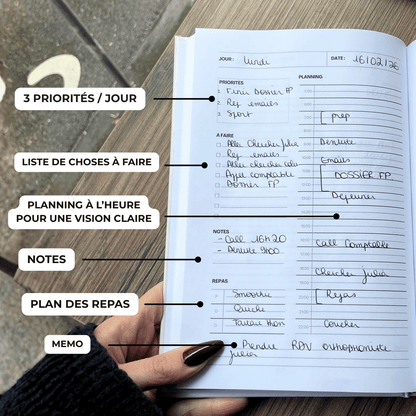 JOUR : lundi
DATE : 16/02/26
PRIORITÉS
1 Finir Dossier FP
2 Rep emails
3 Sport
A FAIRE
Aller chercher Julia
Rep emails
Aller chercher
Appel comptable
Dossier FP
NOTES
- Call 16h20
- Dentiste 9h00
REPAS
Smoothie
Quiche
thon
PLANNING
prep
Dentiste
Emails
DOSSIER FP
Dejeuner
Call Comptable
Chercher Julia
Repas
Coucher
Prendre RDV orthophoniste
Julia
3 PRIORITÉS / JOUR
LISTE DE CHOSES À FAIRE
PLANNING À L'HEURE
POUR UNE VISION CLAIRE
NOTES
PLAN DES REPAS
MEMO